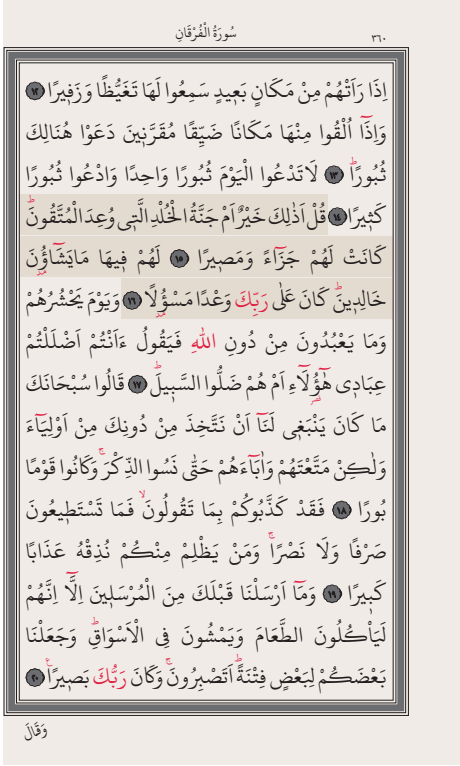 ٣٦٠
سُورَةُ الْفُرْقَانِ
اِذَا رَاَتْهُمْ مِنْ مَكَانٍ بَعٖيدٍ سَمِعُوا لَهَا تَغَيُّظًا وَزَفٖيرًا ﴿١٢﴾
وَاِذَٓا اُلْقُوا مِنْهَا مَكَانًا ضَيِّقًا مُقَرَّنٖينَ دَعَوْا هُنَالِكَ
ثُبُورًاؕ ﴿١٣﴾ لَا تَدْعُوا الْيَوْمَ ثُبُورًا وَاحِدًا وَادْعُوا ثُبُورًا
كَثٖيرًا ﴿١٤﴾ قُلْ اَذٰلِكَ خَيْرٌ اَمْ جَنَّةُ الْخُلْدِ الَّتٖى وُعِدَ الْمُتَّقُونَؕ
كَانَتْ لَهُمْ جَزَٓاءً وَمَصٖيرًا ﴿١٥﴾ لَهُمْ فٖيهَا مَا يَشَٓاؤُ۫نَ
خَالِدٖينَؕ كَانَ عَلٰى رَبِّكَ وَعْدًا مَسْؤُ۫لًا ﴿١٦﴾ وَيَوْمَ يَحْشُرُهُمْ
وَمَا يَعْبُدُونَ مِنْ دُونِ اللّٰهِ فَيَقُولُ ءَاَنْتُمْ اَضْلَلْتُمْ
عِبَادٖى هٰٓؤُ۬لَٓاءِ اَمْ هُمْ ضَلُّوا السَّبٖيلَؕ ﴿١٧﴾ قَالُوا سُبْحَانَكَ
مَا كَانَ يَنْبَغٖى لَنَٓا اَنْ نَتَّخِذَ مِنْ دُونِكَ مِنْ اَوْلِيَٓاءَ
وَلٰكِنْ مَتَّعْتَهُمْ وَاٰبَٓاءَهُمْ حَتّٰى نَسُوا الذِّكْرَۚ وَكَانُوا قَوْمًا
بُورًا ﴿١٨﴾ فَقَدْ كَذَّبُوكُمْ بِمَا تَقُولُونَۙ فَمَا تَسْتَطٖيعُونَ
صَرْفًا وَلَا نَصْرًاۚ وَمَنْ يَظْلِمْ مِنْكُمْ نُذِقْهُ عَذَابًا
كَبٖيرًا ﴿١٩﴾ وَمَٓا اَرْسَلْنَا قَبْلَكَ مِنَ الْمُرْسَلٖينَ اِلَّٓا اِنَّهُمْ
لَيَاْكُلُونَ الطَّعَامَ وَيَمْشُونَ فِى الْاَسْوَاقِؕ وَجَعَلْنَا
بَعْضَكُمْ لِبَعْضٍ فِتْنَةًؕ اَتَصْبِرُونَۚ وَكَانَ رَبُّكَ بَصٖيرًاۚ ﴿٢٠﴾
وَقَالَ